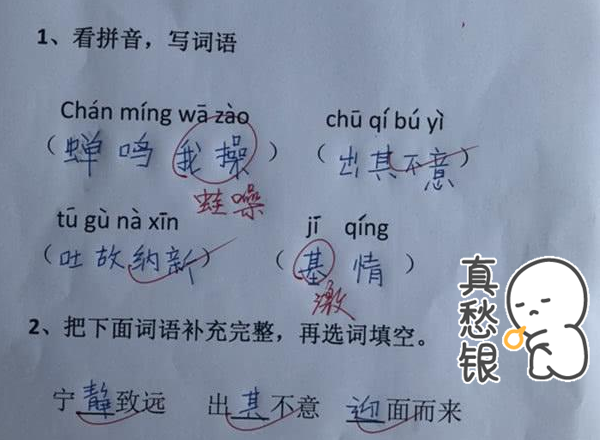 1、看拼音，写词语
Chán míng wā zào chū qí bú yì
（蝉鸣我操）（出其不意）
蛙噪
tū gù nà xīn jī qíng
（吐故纳新）（基情）
激
真愁银
2、把下面词语补充完整，再选词填空。
宁静致远 出其不意 迎面而来